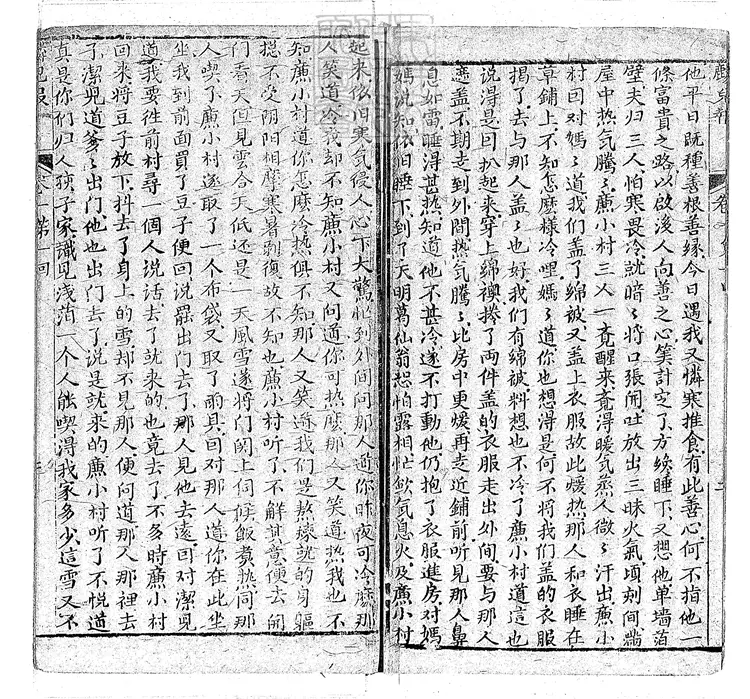 他平日既種善根善緣今日遇我又憐寒推食有此善心何不指他一
條富貴之路以啟後人向善之心筭計定了方纔睡下又想他单墻薄
壁夫归三人怕寒畏冷就暗〻將口張開吐放出三昧火氣頃刻间满
屋中热气騰〻蔗小村三人一竟醒来竟得暖气蒸人微〻汗出蔗小
村囙对媽〻道我们盖了綿被又盖上衣服故此煖热那人和衣睡在
草鋪上不知怎麽樣冷哩媽〻道你也想得是何不将我们盖的衣服
揭了去与那人盖〻也好我们有綿被料想也不冷了蔗小村道這也
说得是囙扒起来穿上綿襖捲了两件盖的衣服走出外间要与那人
遮盖不期走到外間热气騰〻比房中更煖再走近鋪前听見那人鼻
息如雷睡得甚热知道他不甚冷遂不打動他仍抱了衣服進房对媽
媽说知依旧睡下到了天明葛仙翁恐怕露相忙歛气息火及蔗小村
起来依旧寒气侵人心下大驚忙到外间问那人道你昨夜可冷麽那
人笑道冷我却不知蔗小村又问道你可热麽那人又笑道热我也不
知蔗小村道你怎麽冷热俱不知那人又笑道我们是熬煉就的身軀
捴不受阴阳相摩寒暑剥復故不知也蔗小村听了不解其意便去開
们看天但見雪合天低还是一天風雪遂将门関上伺候飯煮热同那
人喫了蔗小村遂取了一个布袋又取了雨具囙对那人道你在此坐
坐我到前面買了豆子便回说罢出门去了那人見他去遠囙对潔兒
道我要徃前村尋一個人说话去了就来的也竟去了不多時蔗小村
回来将豆子放下抖去了身上的雪却不見那人便问道那人那裡去
了潔兒道爹〻出门他也出门去了说是就来的蔗小村听了不悦道
真是你们归人孩子家識見浅薄一个人能喫得我家多少這雪又不